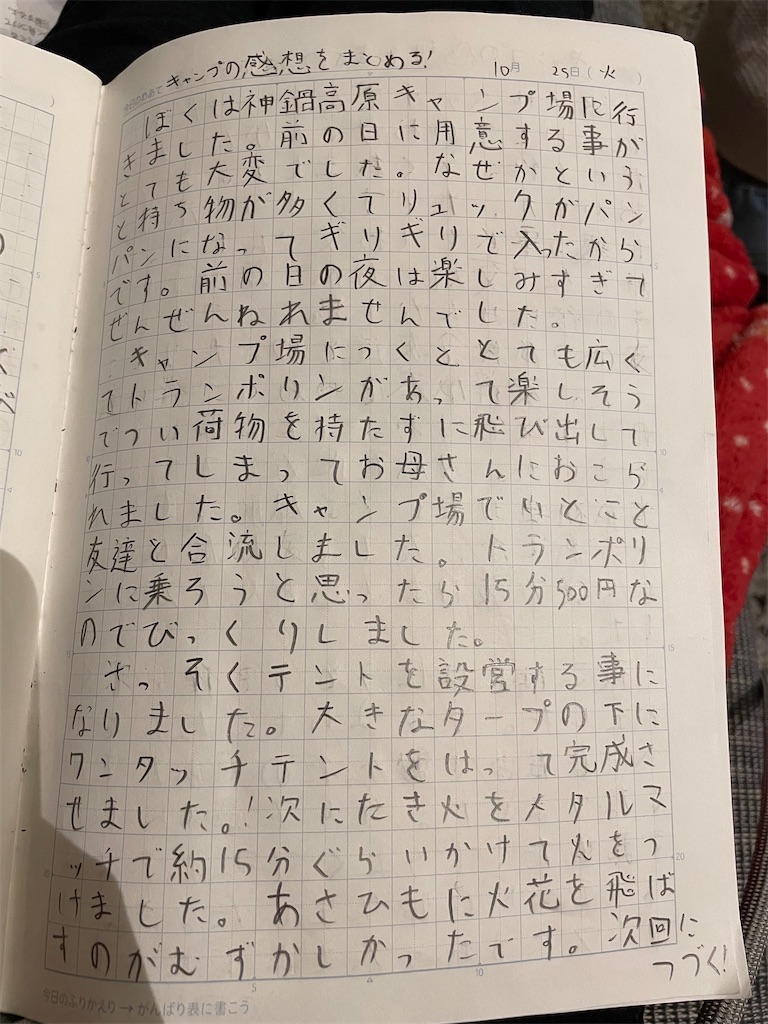 今日のめあて キャンプの感想をまとめる! 10月 25日(火)
ぼくは神鍋高原キャンプ場に行
きました。前の日に用意する事が
とても大変でした。なぜかという
と持ち物が多くてリュックがパン
パンになってギリギリで入ったから
です。前の日の夜は楽しみすぎて
ぜんぜんねれませんでした。
キャンプ場につくととても広く
てトランポリンがあって楽しそう
でつい荷物を持たずに飛び出して
行ってしまってお母さんにおこら
れました。キャンプ場でいとこと
友達と合流しました。トランポリ
ンに乗ろうと思ったら15分500円な
のでびっくりしました。
さっそくテントを設営する事に
なりました。大きなタープの下に
ワンタッチテントをはって完成さ
せました。!次にたき火をメタルマ
ッチで約15分ぐらいかけて火をつ
けました。あさひもに火花を飛ば
すのがむずかしかったです。次回に
つづく!
今日のふりかえり→がんばり表に書こう